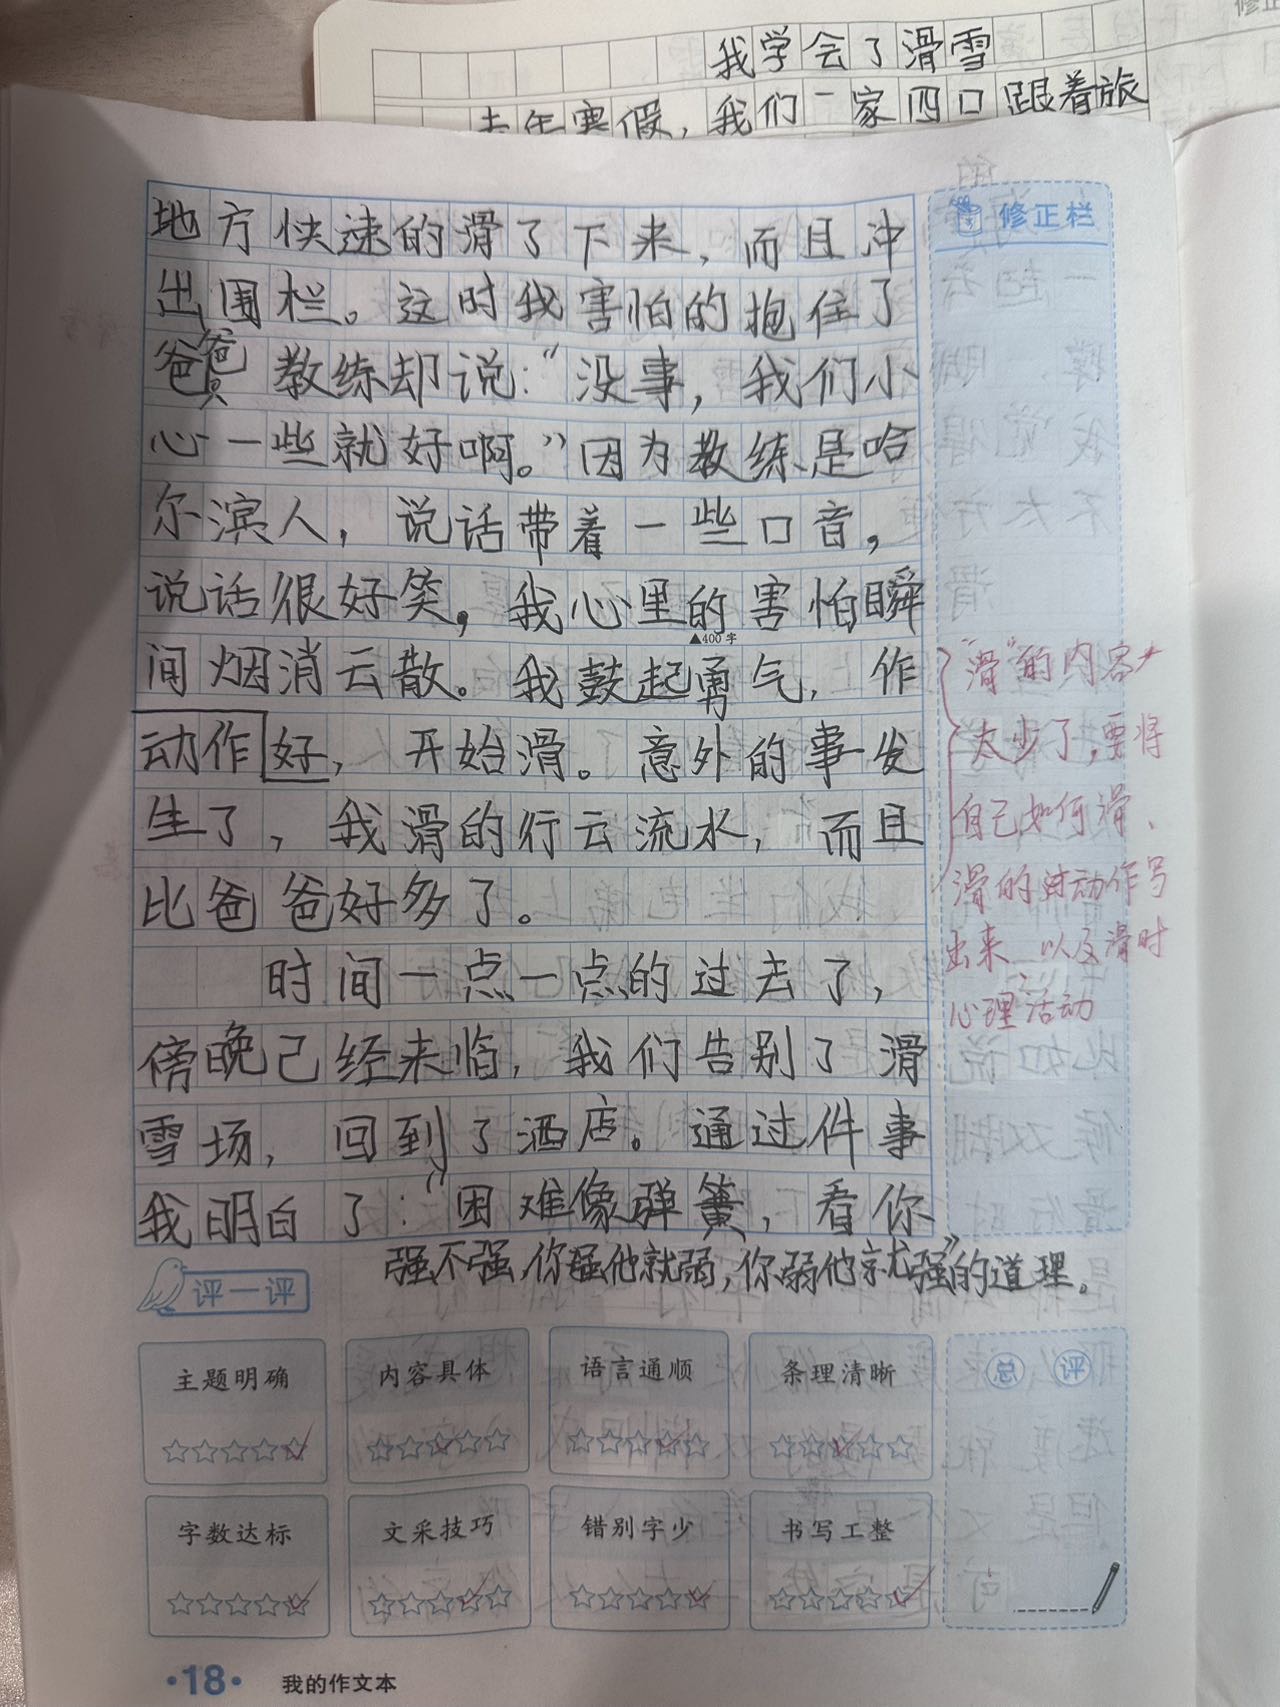 我学会了滑雪
去年寒假，我们一家四口跟着旅
修正栏
地方快速的滑了下来，而且冲
出围栏。这时我害怕的抱住了
爸爸 教练却说：“没事，我们小
心一些就好啊。”因为教练是哈
尔滨人，说话带着一些口音，
说话很好笑，我心里的害怕瞬
▲400字
间烟消云散。我鼓起勇气，作
动作好，开始滑。意外的事发
生了，我滑的行云流水，而且
比爸爸好多了。
时间一点一点的过去了，
傍晚已经来临，我们告别了滑
雪场，回到了酒店。通过件事
我明白了：“困难像弹簧，看你
强不强，你强他就弱，你弱他就强”的道理。
“滑”的内容
太少了，要将
自己如何滑、
滑的动作写
出来 以及滑时
心理活动
评一评
主题明确
内容具体
语言通顺
条理清晰
总评
字数达标
文采技巧
错别字少
书写工整
·18· 我的作文本